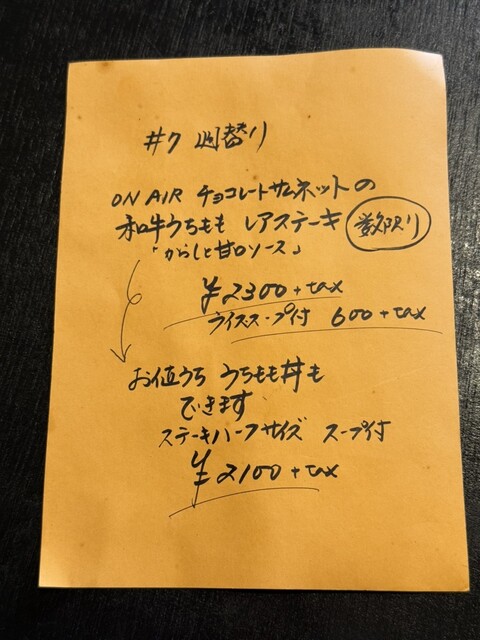 #7 週替り
ON AIR チョコレートサムネットの
和牛うちもも レアステーキ 数限り
「からしと甘口ソース」
¥2300+tax
ライススープ付 600+tax
お値うち うちもも丼も
できます
ステーキハーフサイズ スープ付
¥2100+tax